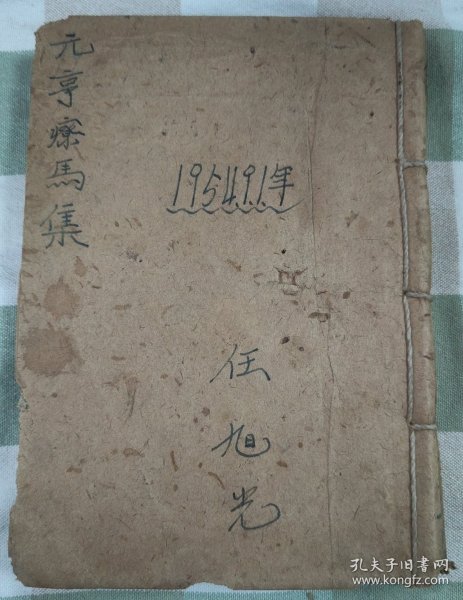 元亨療馬集
1954.9.1.年
任旭光
孔夫子旧书网
www.kongfz.com